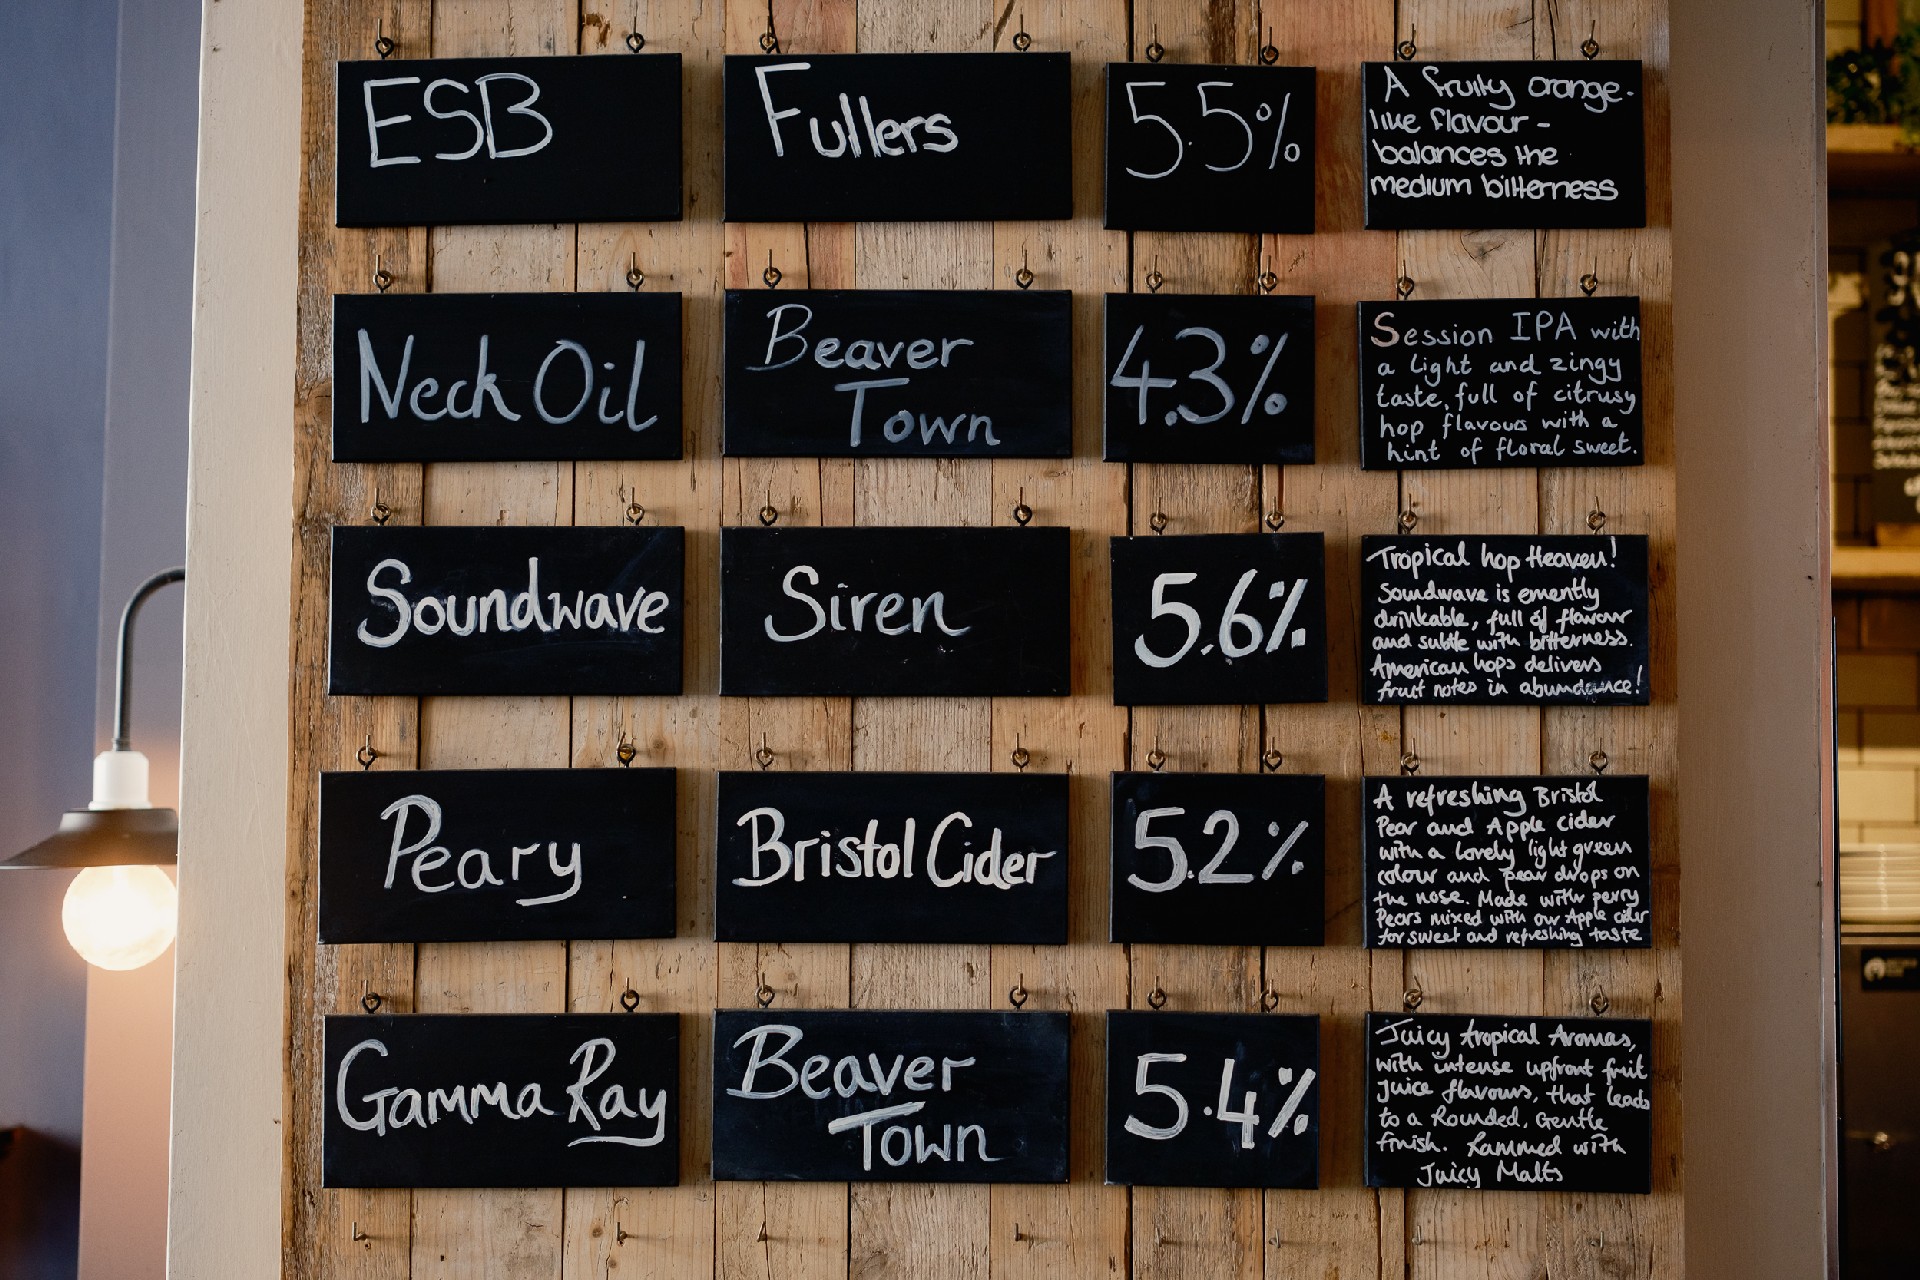 ESB
Fullers
5.5%
A fruity orange-
like flavour -
balances the
medium bitterness
Neck Oil
Beaver
Town
4.3%
Session IPA with
a light and zingy
taste, full of citrusy
hop flavours with a
hint of floral sweet.
Soundwave
Siren
5.6%
Tropical hop Heaven!
Soundwave is emently
drinkable, full of flavour
and subtle with bitterness.
American hops delivers
fruit notes in abundance!
Peary
Bristol Cider
5.2%
A refreshing Bristol
Pear and Apple cider
with a lovely light green
colour and pear drops on
the nose. Made with perry
Pears mixed with our Apple cider
for sweet and refreshing taste
Gamma Ray
Beaver
Town
5.4%
Juicy tropical Aromas,
with intense upfront fruit
juice flavours, that leads
to a Rounded, Gentle
finish. Rammed with
Juicy Malts